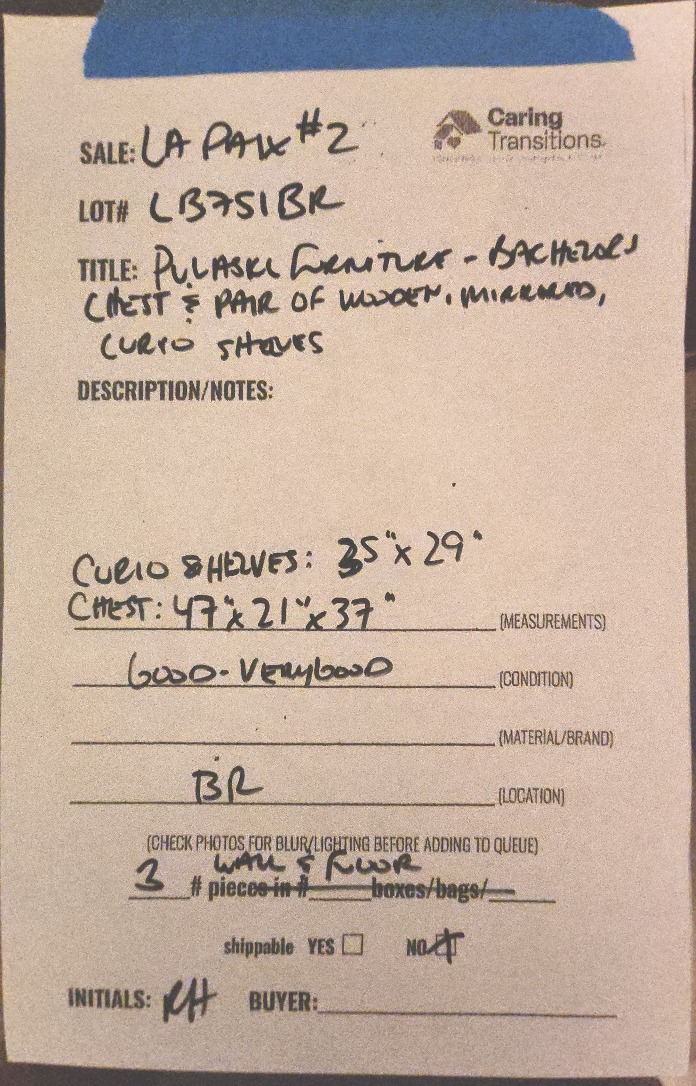 SALE: LA PAIX #2
Caring
Transitions
LOT# LB751BR
TITLE: PULASKI FURNITURE - BACHELORS
CHEST & PAIR OF WOODEN, MIRRORED,
CURIO SHELVES
DESCRIPTION/NOTES:
CURIO SHELVES: 35" x 29"
CHEST: 47" x 21" x 37" (MEASUREMENTS)
GOOD - VERY GOOD (CONDITION)
(MATERIAL/BRAND)
BR (LOCATION)
(CHECK PHOTOS FOR BLUR/LIGHTING BEFORE ADDING TO QUEUE)
WALL & FLOOR
3 # pieces in # boxes/bags/
shippable YES NO
INITIALS: RH BUYER: